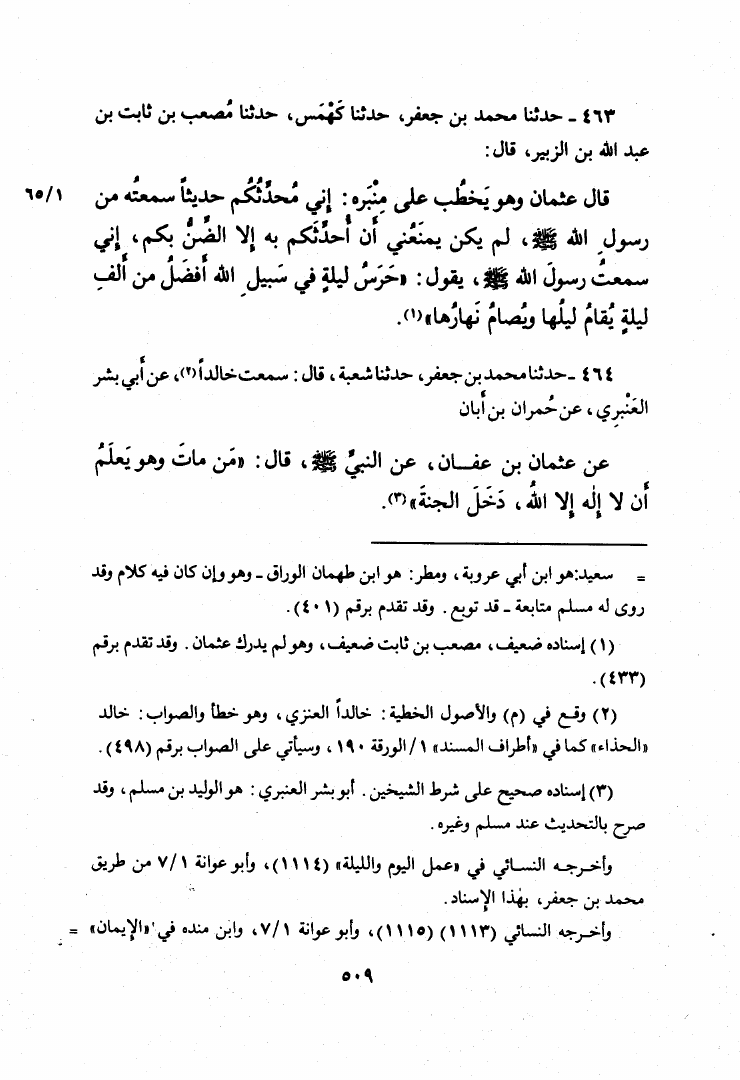 ٤٦٣ ـ حدثنا محمد بن جعفر، حدثنا كَهْمَس، حدثنا مُصعب بن ثابت بن
عبد الله بن الزبير، قال:
قال عثمان وهو يَخطُب على مِنْبَره: إني مُحدِّثُكُم حديثاً سمعتُه من ٦٥/١
رسولِ الله ﷺ، لم يكن يمنَعُني أن أُحدِّثَكم به إلا الضِّنُّ بكم، إني
سمعتُ رسولَ الله ﷺ، يقول: «حَرَسُ ليلةٍ في سَبيلِ الله أَفضَلُ من أَلفِ
ليلةٍ يُقامُ ليلُها ويُصامُ نَهارُها»(١).
٤٦٤ ـ حدثنا محمد بن جعفر، حدثنا شعبة، قال: سمعت خالداً(٢)، عن أَبي بشر
العَنْبرِي، عن حُمران بن أَبان
عن عثمان بن عفـان، عن النبيِّ ﷺ، قال: «مَن ماتَ وهو يَعلَمُ
أَن لا إِلٰه إِلا اللهُ، دَخَلَ الجنةَ»(٣).
= سعيد:هو ابن أبي عروبة، ومطر: هو ابن طهمان الوراق ـ وهو وإن كان فيه كلام وقد
روى له مسلم متابعة ـ قد توبع. وقد تقدم برقم (٤٠١).
(١) إسناده ضعيف، مصعب بن ثابت ضعيف، وهو لم يدرك عثمان. وقد تقدم برقم
(٤٣٣).
(٢) وقع في (م) والأصول الخطية: خالداً العنزي، وهو خطأ والصواب: خالد
«الحذاء» كما في «أطراف المسند» ١/الورقة ١٩٠، وسيأتي على الصواب برقم (٤٩٨).
(٣) إسناده صحيح على شرط الشيخين. أبو بشر العنبري: هو الوليد بن مسلم، وقد
صرح بالتحديث عند مسلم وغيره.
وأخرجه النسائي في «عمل اليوم والليلة» (١١١٤)، وأبو عوانة ٧/١ من طريق
محمد بن جعفر، بهٰذا الإِسناد.
وأخرجه النسائي (١١١٣) (١١١٥)، وأبو عوانة ٧/١، وابن منده في «الإِيمان» =
٥٠٩